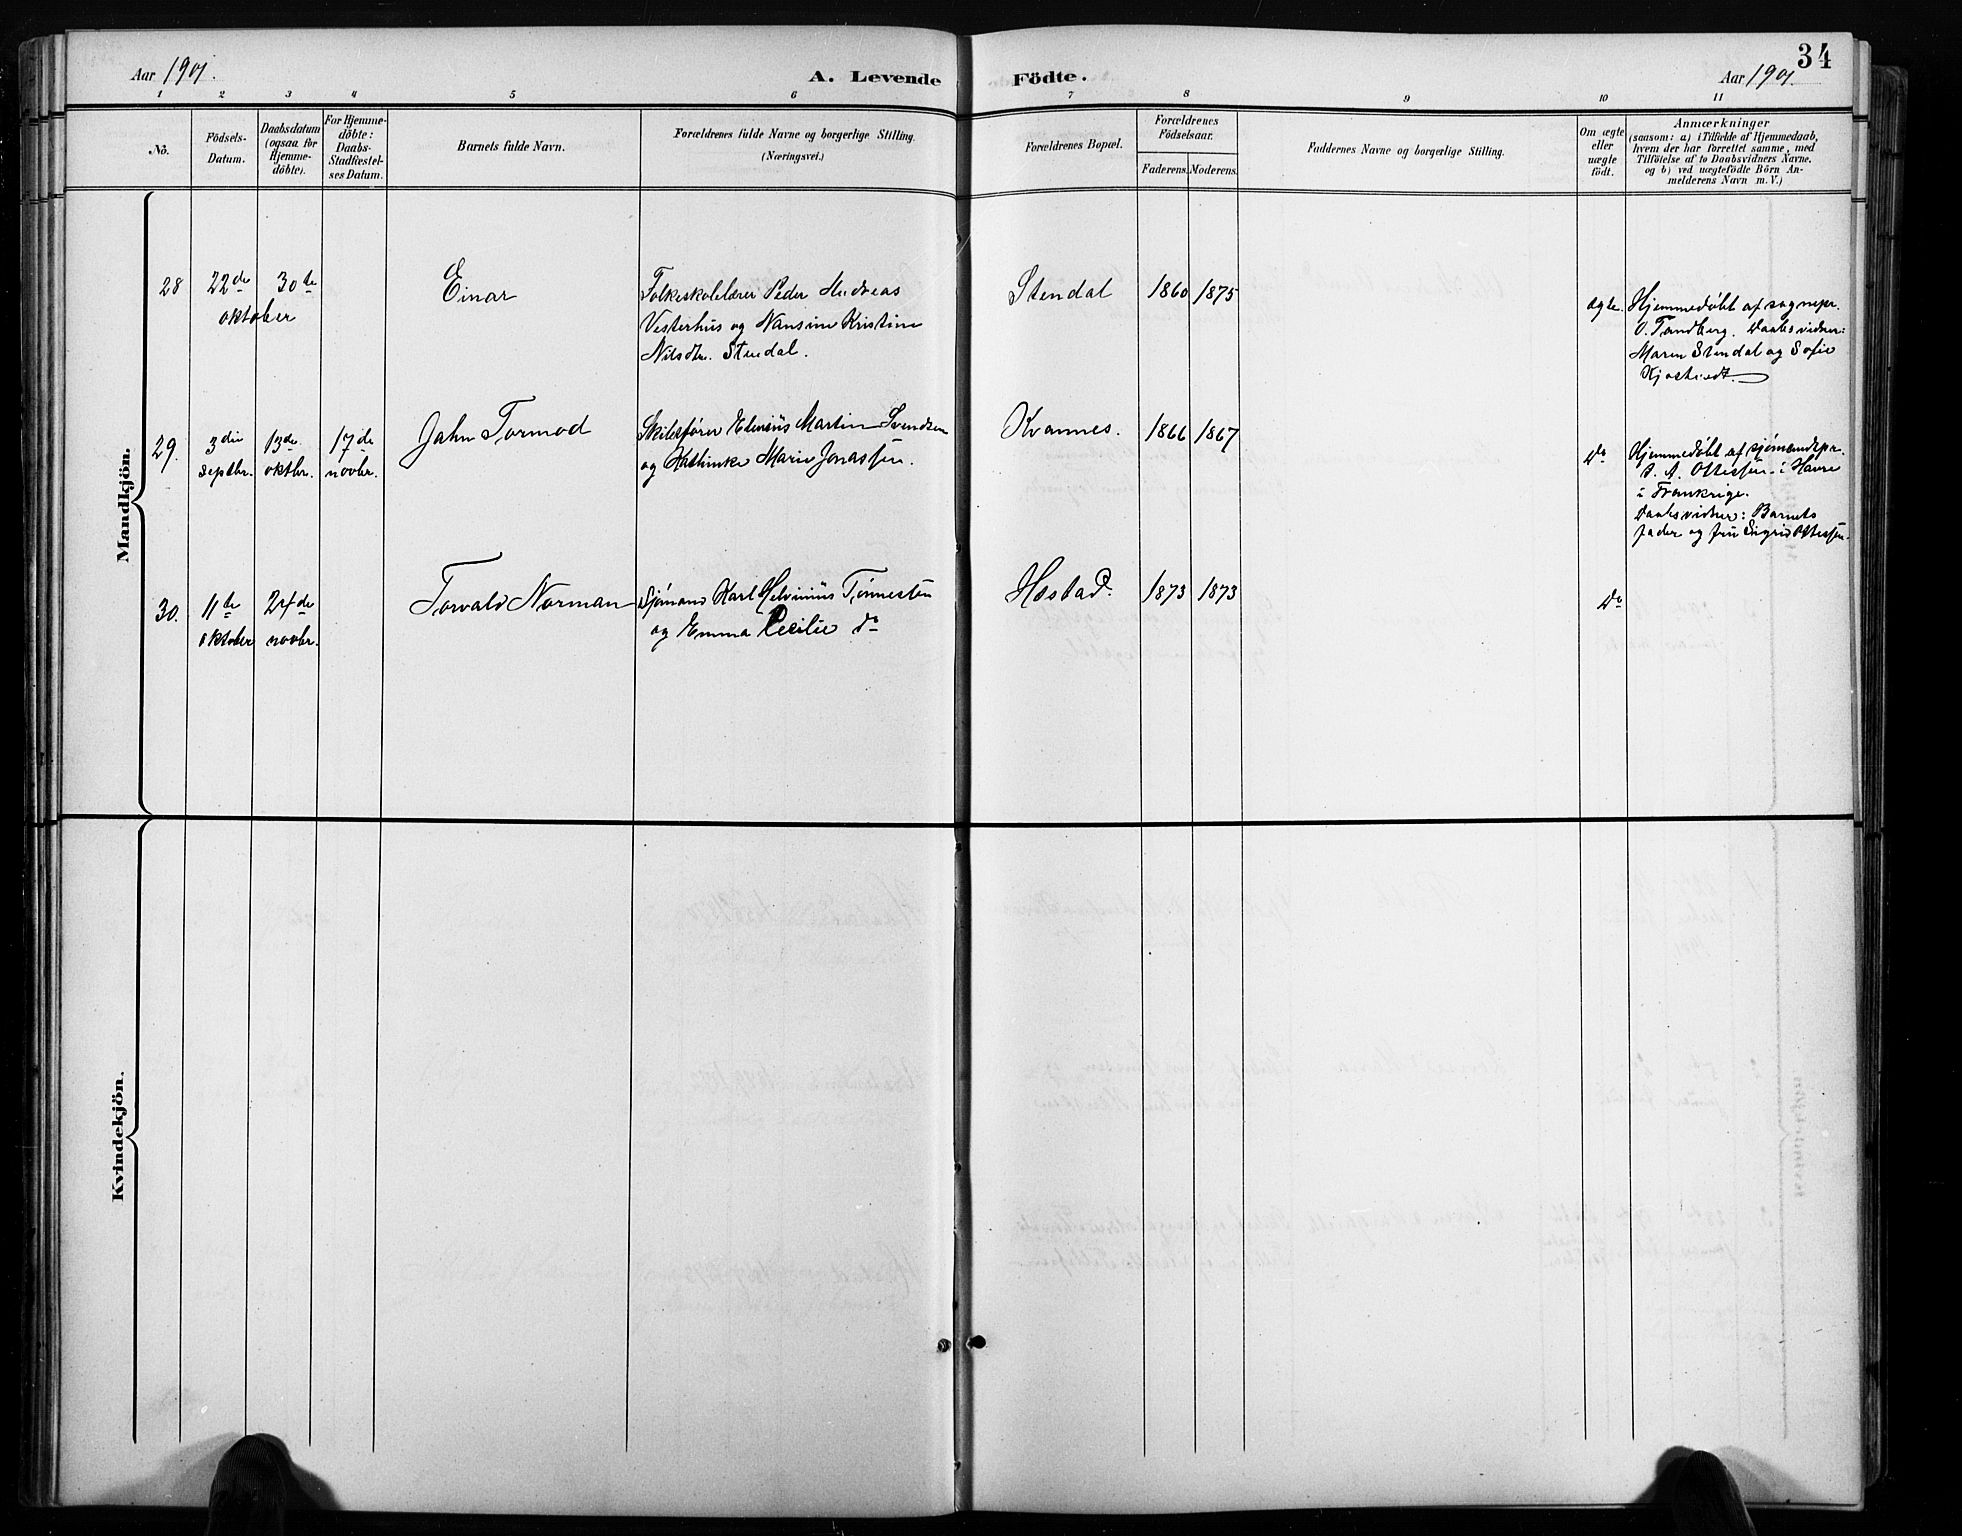 34
Aar 1901.
A. Levende
Födte.
Aar 1901.
1 2 3 4 5 6 7 8 9 10 11
No.
Födsels-
Datum.
Daabsdatum
(ogsaa for
Hjemme-
döbte).
For Hjemme-
döbte:
Daabs-
Stadfæstel-
ses Datum.
Barnets fulde Navn.
Forældrenes fulde Navne og borgerlige Stilling.
(Næringsvei.)
Forældrenes Bopæl.
Forældrenes
Födselsaar.
Faderens.
Moderens.
Faddernes Navne og borgerlige Stilling.
Om ægte
eller
uægte
födt.
Anmærkninger
(saasom: a) i Tilfælde af Hjemmedaab,
hvem der har forrettet samme, med
Tilföielse af to Daabsvidners Navne.
og b) ved uægtefödte Börn An-
melderens Navn m. V.)
Mandkjön.
28
22de
30te
oktober
Einar
Folkeskolelærer Peder Andreas
Vesterhus og Nansine Kristine
Nilsdtr. Stendal.
Stendal
1860
1875
ægte.
Hjemmedøbt af sognepr.
O. Tandberg. Daabsvidner:
Maren Stendal og Sofie
29.
3die
septbr.
13de
oktbr.
17de
novbr.
Jahn Tormod
Skibsfører Martin Svendsen
og Kathinke Marie Jonassen.
Kvannes.
1866
1867
Do
Hjemmedøbt af sjømandspr.
A. Ottessen i Havre
i Frankrige.
Daabsvidner: Barnets
fader og fru Sigrid Ottessen.
30.
11te
oktober
24de
novbr.
Torvald Norman
Sjømand Karl Helvinius Tønnesen
og Emma Cecilie do
Hæstad.
1873
1873
Do
Kvindekjön.